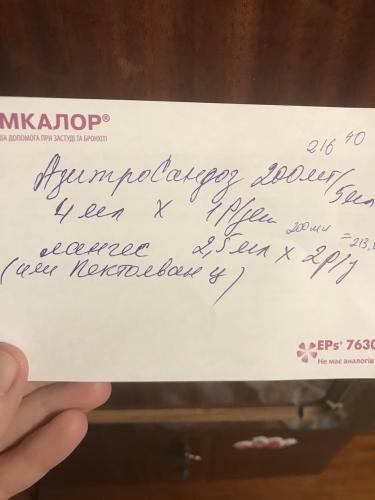 МКАЛОР®
ША ДОПОМОГА ПРИ ЗАСТУДІ ТА БРОНХІТІ
216 40
АзитроСандоз 200мг/5мл
4 мл х 1Р/день
200мл = 213,
лангес 2,5мл х 2р/д
(или Пектолван ц)
EPs® 7630
Не має аналогів